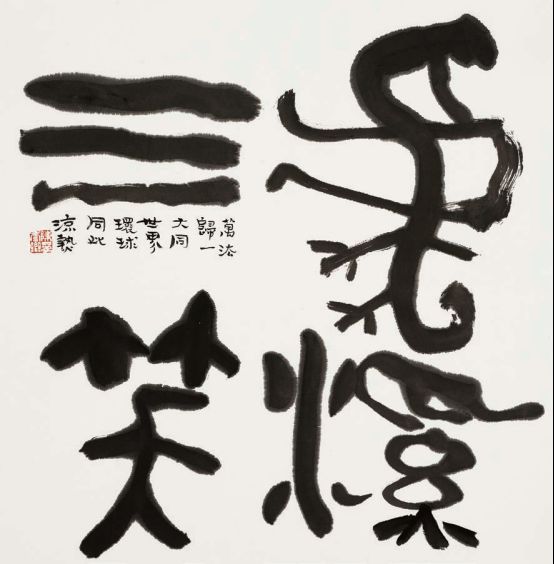 虎溪
三笑
萬法
歸一
大同
世界
環球
同此
涼熱